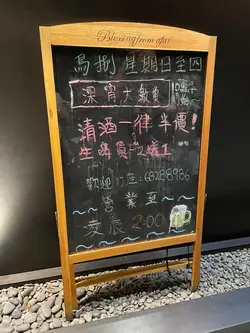 Blessing from afar
鳥捌 星期日至四
深宵大歡賞
清酒一律半價!
生啤買一送1
歡迎訂座 68288986
營業至
凌晨 2:00